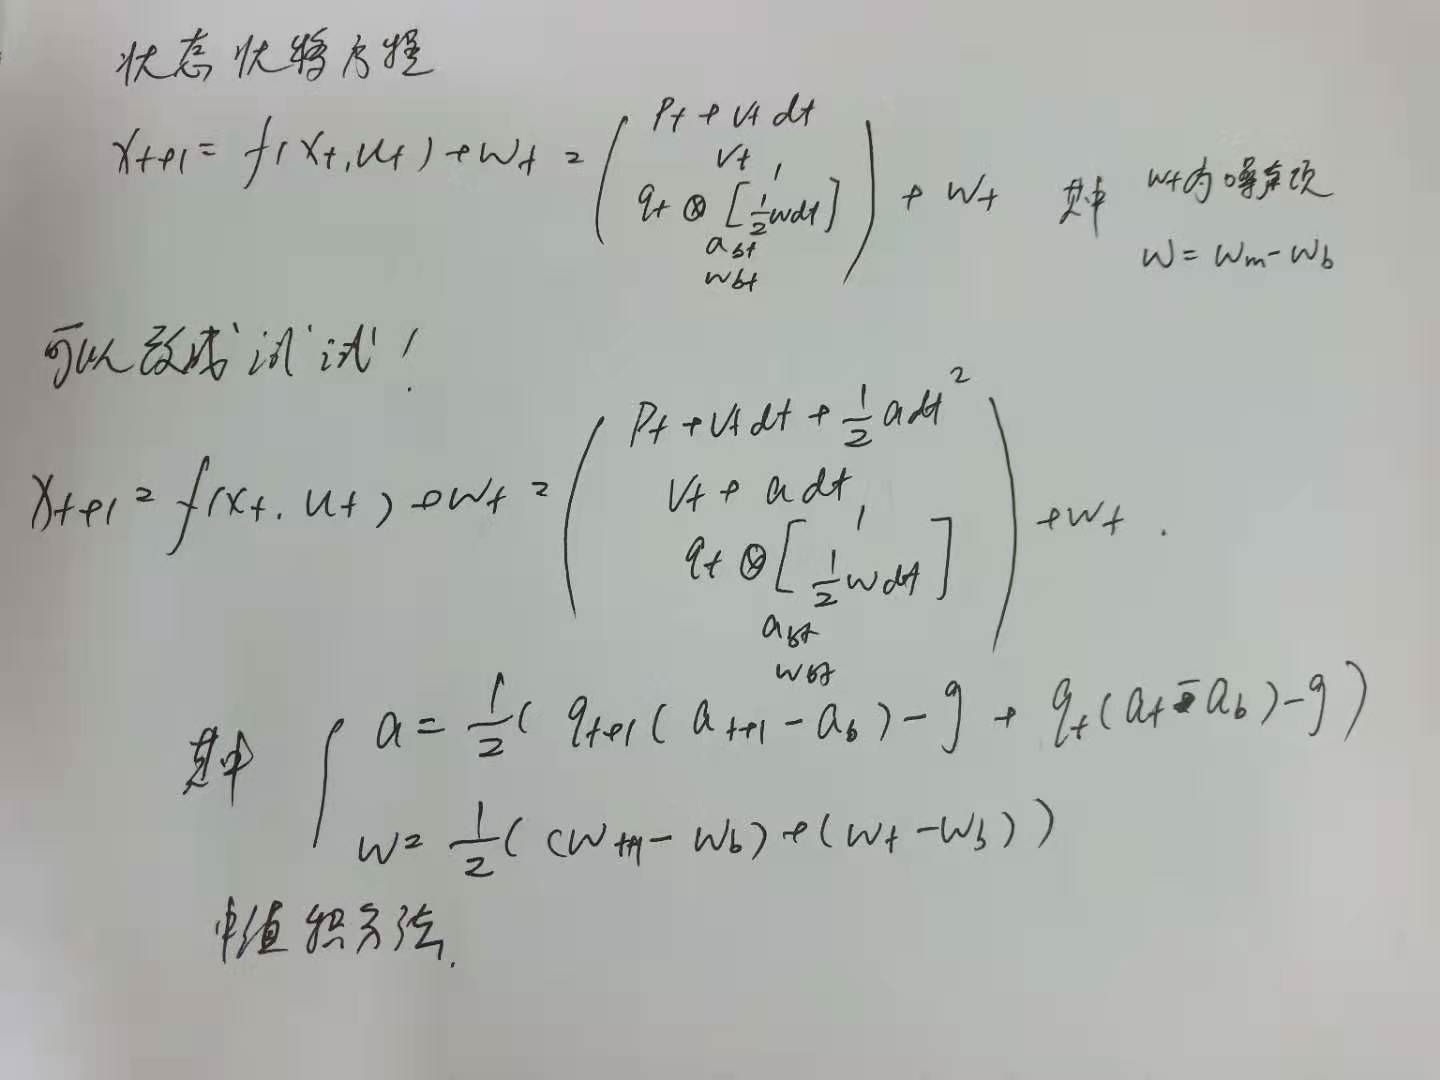 状态状转方程
x_{t+1} = f(x_t, u_t) + w_t = ( P_t + v_t dt ; v_t ; q_t ⊗ [1 ; 1/2 w dt] ; a_{bt} ; w_{bt} ) + w_t 其中 w_t为噪声项
w = w_m - w_b
可以改成试试!
x_{t+1} = f(x_t, u_t) + w_t = ( P_t + v_t dt + 1/2 a dt^2 ; v_t + a dt ; q_t ⊗ [1 ; 1/2 w dt] ; a_{bt} ; w_{bt} ) + w_t .
其中 { a = 1/2 ( q_{t+1} ( a_{t+1} - a_b ) - g + q_t ( a_t - a_b ) - g )
w = 1/2 ( (w_{t+1} - w_b) + (w_t - w_b) )
中值积分法.